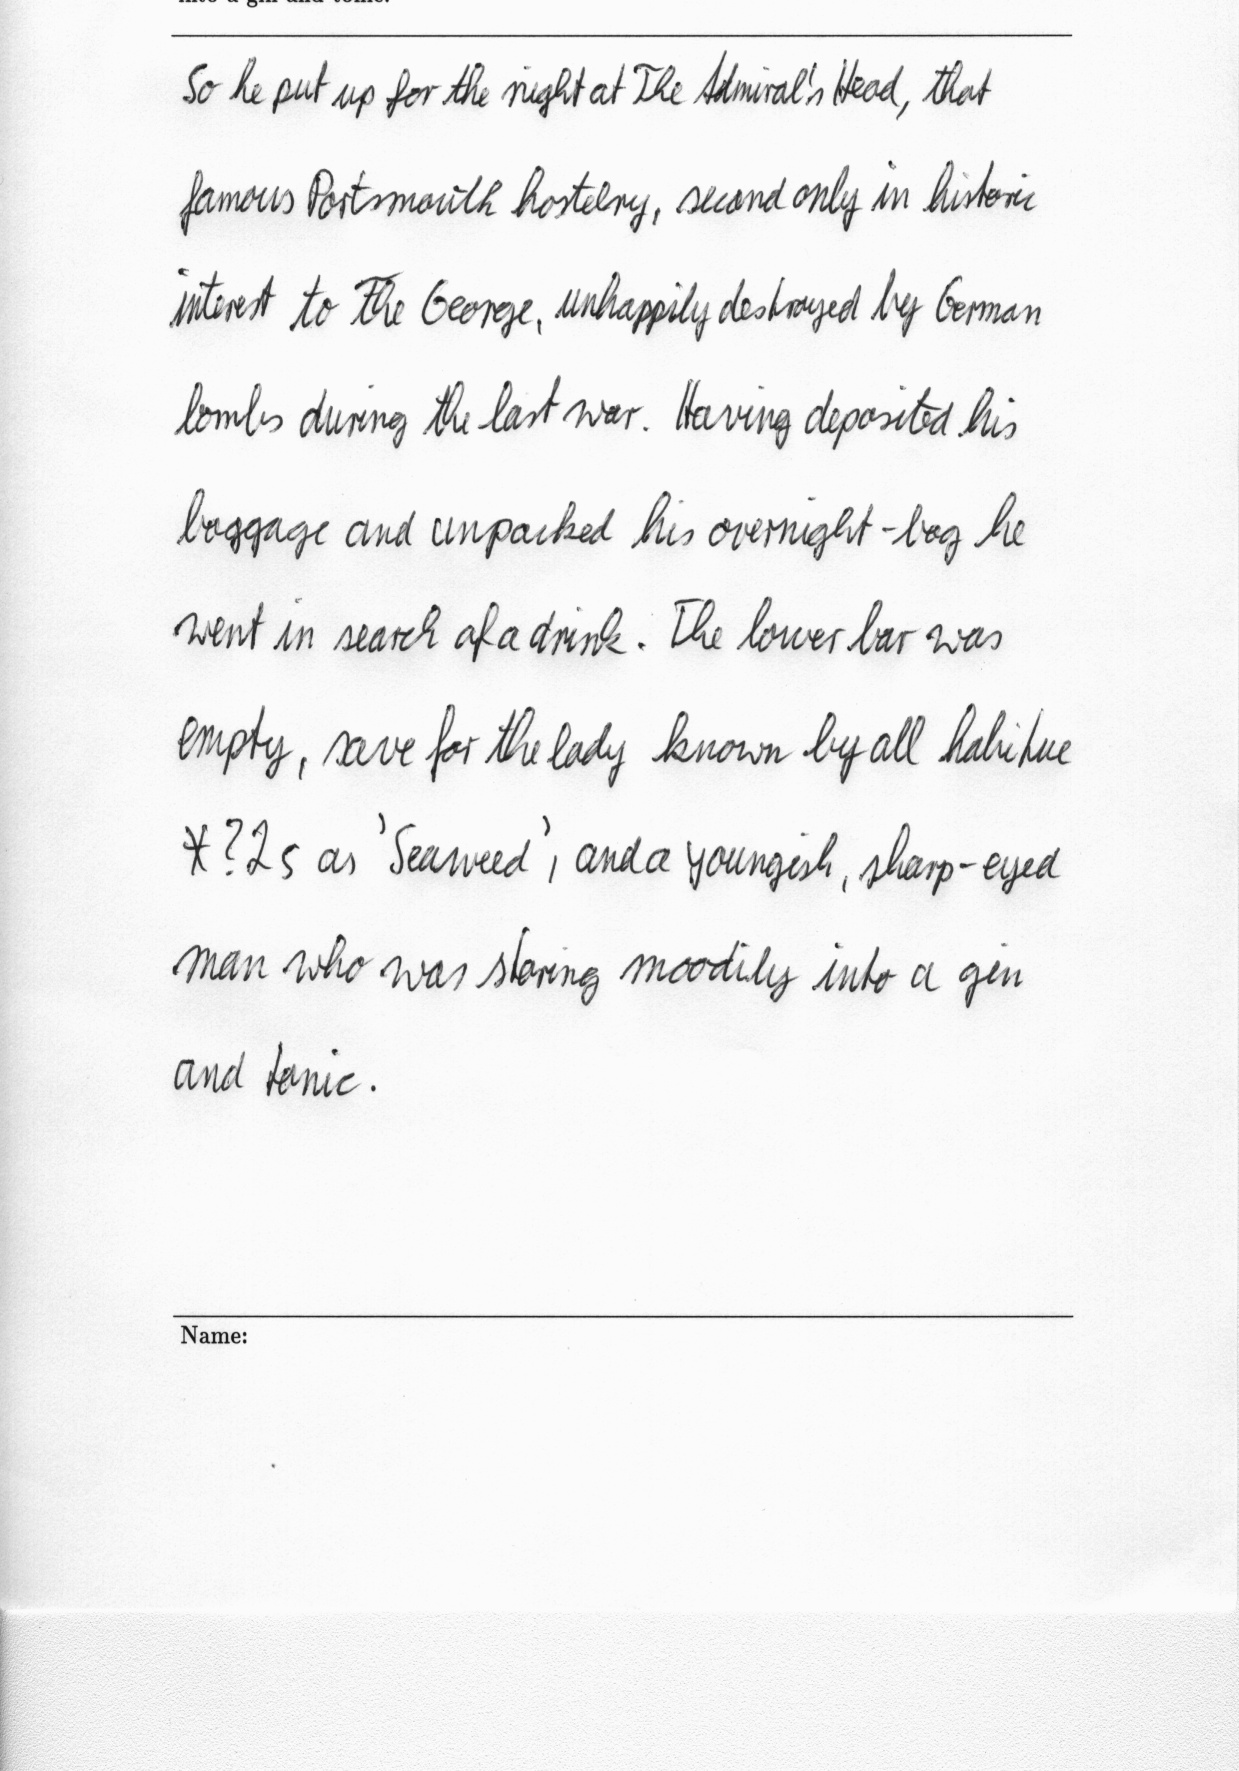 into a gin and tonic.
So he put up for the night at The Admiral's Head, that
famous Portsmouth hostelry, second only in historic
interest to The George, unhappily destroyed by German
bombs during the last war. Having deposited his
baggage and unpacked his overnight-bag he
went in search of a drink. The lower bar was
empty, save for the lady known by all habitue
*?2s as 'Seaweed', and a youngish, sharp-eyed
man who was staring moodily into a gin
and tonic.
Name: